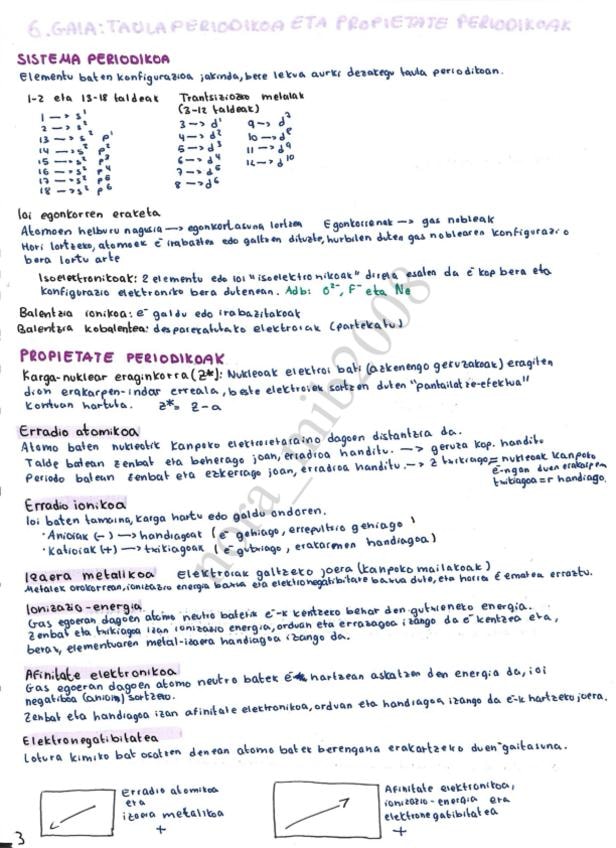 6.GAIA: TAULA PERIODIKOA ETA PROPIETATE PERIODIKOAK
SISTEMA PERIODIKOA
Elementu baten konfigurazioa jakinda, bere lekua aurki dezakegu taula periodikoan.
1-2 eta 13-18 taldeak
1 —> s¹
2 —> s²
13 —> s² p¹
14 —> s² p²
15 —> s² p³
16 —> s² p⁴
17 —> s² p⁵
18 —> s² p⁶
Trantsiziozko metalak
(3-12 taldeak)
3 —> d¹
4 —> d²
5 —> d³
6 —> d⁴
7 —> d⁵
8 —> d⁶
9 —> d⁷
10 —> d⁸
11 —> d⁹
12 —> d¹⁰
Ioi egonkorren eraketa
Atomoen helburu nagusia —> egonkortasuna lortzea Egonkorrenak —> gas nobleak
Hori lortzeko, atomoek e⁻ irabazten edo galtzen dituzte, hurbilen duten gas noblearen konfigurazio
bera lortu arte
Isoelektronikoak: 2 elementu edo ioi "isoelektronikoak" direla esaten da e⁻ kop bera eta
konfigurazio elektroniko bera dutenean. Adb: O²⁻, F⁻ eta Ne
Balentzia ionikoa: e⁻ galdu edo irabazitakoak
Balentzia kobalentea: desparekatutako elektroiak (partekatu)
PROPIETATE PERIODIKOAK
Karga-nuklear eraginkorra (Z*): Nukleoak elektroi bati (azkenengo geruzakoak) eragiten
dion erakarpen-indar erreala, beste elektroiek sortzen duten "pantailatze-efektua"
kontuan hartuta. Z* = Z-a
Erradio atomikoa
Atomo baten nukleotik kanpoko elektroietaraino dagoen distantzia da.
Talde batean zenbat eta beherago joan, erradioa handitu. —> geruza kop. handitu
Periodo batean zenbat eta ezkerrago joan, erradioa handitu. —> Z txikiago = nukleoak kanpoko
e⁻-ngan duen erakarpen
txikiagoa = r handiago.
Erradio ionikoa
Ioi baten tamaina, karga hartu edo galdu ondoren.
· Anioiak (-) —> handiagoak (e⁻ gehiago, errepultsio gehiago)
· Katioiak (+) —> txikiagoak (e⁻ gutxiago, erakarmen handiagoa)
Izaera metalikoa Elektroiak galtzeko joera (kanpoko mailakoak)
Metalek orokorrean, ionizazio energia baxua eta elektronegatibitate baxua dute, eta horrek e⁻ ematea erraztu.
Ionizazio-energia
Gas egoeran dagoen atomo neutro batetik e⁻-k kentzeko behar den gutxieneko energia.
Zenbat eta txikiagoa izan ionizazio energia, orduan eta errazagoa izango da e⁻ kentzea eta,
beraz, elementuaren metal-izaera handiagoa izango da.
Afinitate elektronikoa
Gas egoeran dagoen atomo neutro batek e⁻ hartzean askatzen den energia da, ioi
negatiboa (anioia) sortzeko.
Zenbat eta handiagoa izan afinitate elektronikoa, orduan eta handiagoa izango da e⁻-k hartzeko joera.
Elektronegatibitatea
Lotura kimiko bat osatzen denean atomo batek berengana erakartzeko duen gaitasuna.
erradio atomikoa
eta
izaera metalikoa
+
Afinitate elektronikoa,
ionizazio-energia eta
elektronegatibitatea
+
3
nora_mib2008